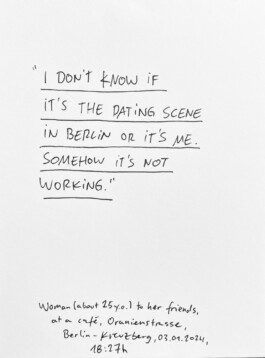 "I DON'T KNOW IF
IT'S THE DATING SCENE
IN BERLIN OR IT'S ME.
SOMEHOW IT'S NOT
WORKING."
Woman (about 25 y.o.) to her friends,
at a café, Oranienstrasse,
Berlin-Kreuzberg, 03.01.2024,
18:27h